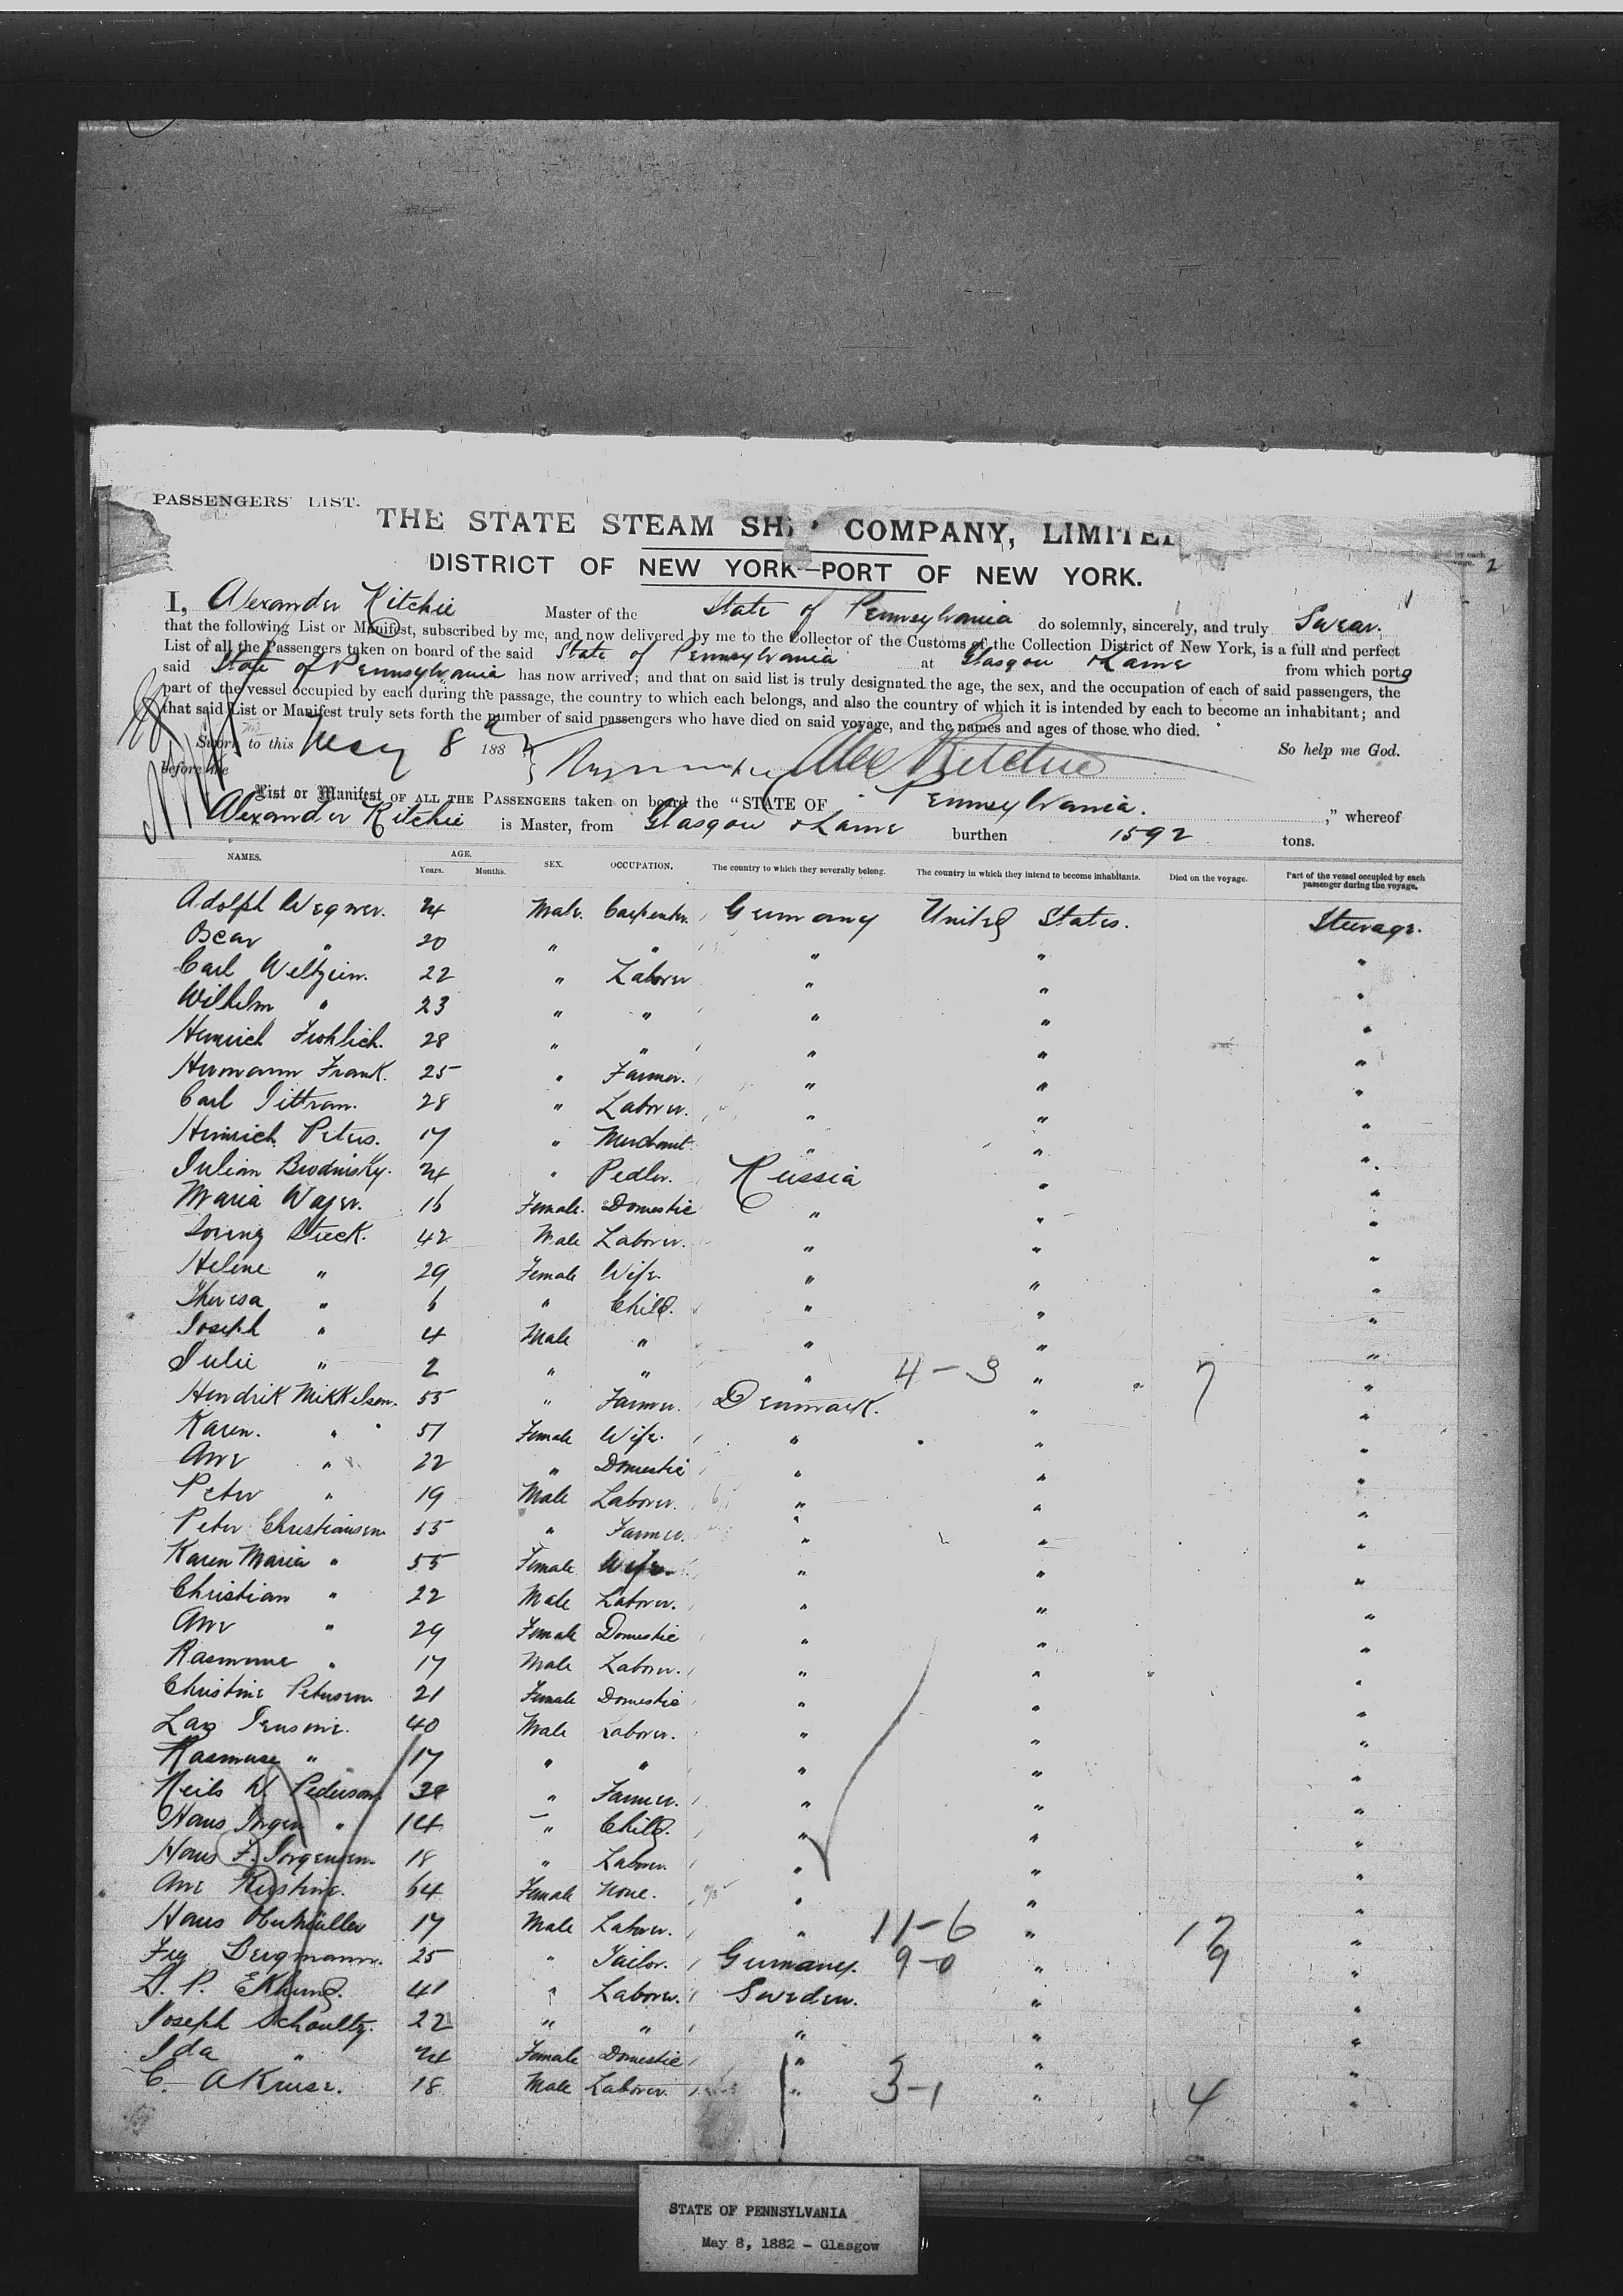 PASSENGERS' LIST.
THE STATE STEAM SHIP COMPANY, LIMITED
2
DISTRICT OF NEW YORK—PORT OF NEW YORK.
I, Alexander Ritchie Master of the State of Pennsylvania do solemnly, sincerely, and truly Swear.
that the following List or Manifest, subscribed by me, and now delivered by me to the Collector of the Customs of the Collection District of New York, is a full and perfect
List of all the Passengers taken on board of the said State of Pennsylvania at Glasgow & Larne from which ports
said State of Pennsylvania has now arrived; and that on said list is truly designated the age, the sex, and the occupation of each of said passengers, the
part of the vessel occupied by each during the passage, the country to which each belongs, and also the country of which it is intended by each to become an inhabitant; and
that said List or Manifest truly sets forth the number of said passengers who have died on said voyage, and the names and ages of those who died.
Sworn to this May 8 1882 So help me God.
before me Alex Ritchie
List or Manifest OF ALL THE PASSENGERS taken on board the "STATE OF Pennsylvania.," whereof
Alexander Ritchie is Master, from Glasgow & Larne burthen 1592 tons.
NAMES. AGE. Years. Months. SEX. OCCUPATION. The country to which they severally belong. The country in which they intend to become inhabitants. Died on the voyage. Part of the vessel occupied by each passenger during the voyage.
Adolph Wegner. 24 Male. Carpenter. Germany United States. Steerage.
Oscar " 20 " " " " "
Carl Weltzien. 22 " Laborer " " "
Wilhelm " 23 " " " " "
Heinrich Frohlich. 28 " " " " "
Hermann Frank. 25 " Farmer. " " "
Carl Tittran. 28 " Laborer. " " "
Heinrich Peters. 17 " Merchant " " "
Julian Brodnisky. 24 " Pedler. Russia " "
Maria Wajer. 16 Female. Domestic " " "
Steck. 42 Male Laborer. " " "
Helene " 29 Female Wife. " " "
Theresa " 6 " Child. " " "
Joseph " 4 Male " " " "
Julie " 2 " " " 4-3 " 7 "
Hendrik Mikkelsen. 55 " Farmer. Denmark. " "
Karen. " 51 Female Wife. " " "
Ane " 22 " Domestic " " "
Peter " 19 Male Laborer. " " "
Peter Christiansen 55 " Farmer. " " "
Karen Maria " 55 Female Wife. " " "
Christian " 22 Male Laborer. " " "
Ane " 29 Female Domestic " " "
Rasmine " 17 Male Laborer. " " "
Christine Petersen 21 Female Domestic " " "
Lars Jensine. 40 Male Laborer. " " "
Rasmuse " 17 " " " " "
Neils Pederson. 38 " Farmer. " " "
Hans Jorgen " 14 " Child. " " "
Hans F. Jorgensen. 18 " Laborer " " "
Ane Kirstine. 64 Female None. " " "
Hans 17 Male Laborer. " 11-6 " 17 "
Bergmann. 25 " Tailor. Germany. 9-0 " 9 "
P. Eklund. 41 " Laborer. Sweden. " "
Joseph Schoultz. 22 " " " " "
Ida " 24 Female Domestic " " "
C. A Kruse. 18 Male Laborer. " 3-1 " 4 "
STATE OF PENNSYLVANIA
May 8, 1882 - Glasgow